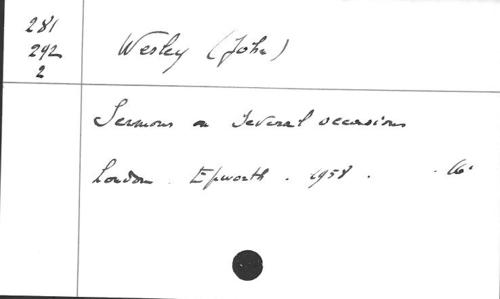 281
292
2
Wesley (John)
Sermons on several occasions
London . Epworth . 1958 .